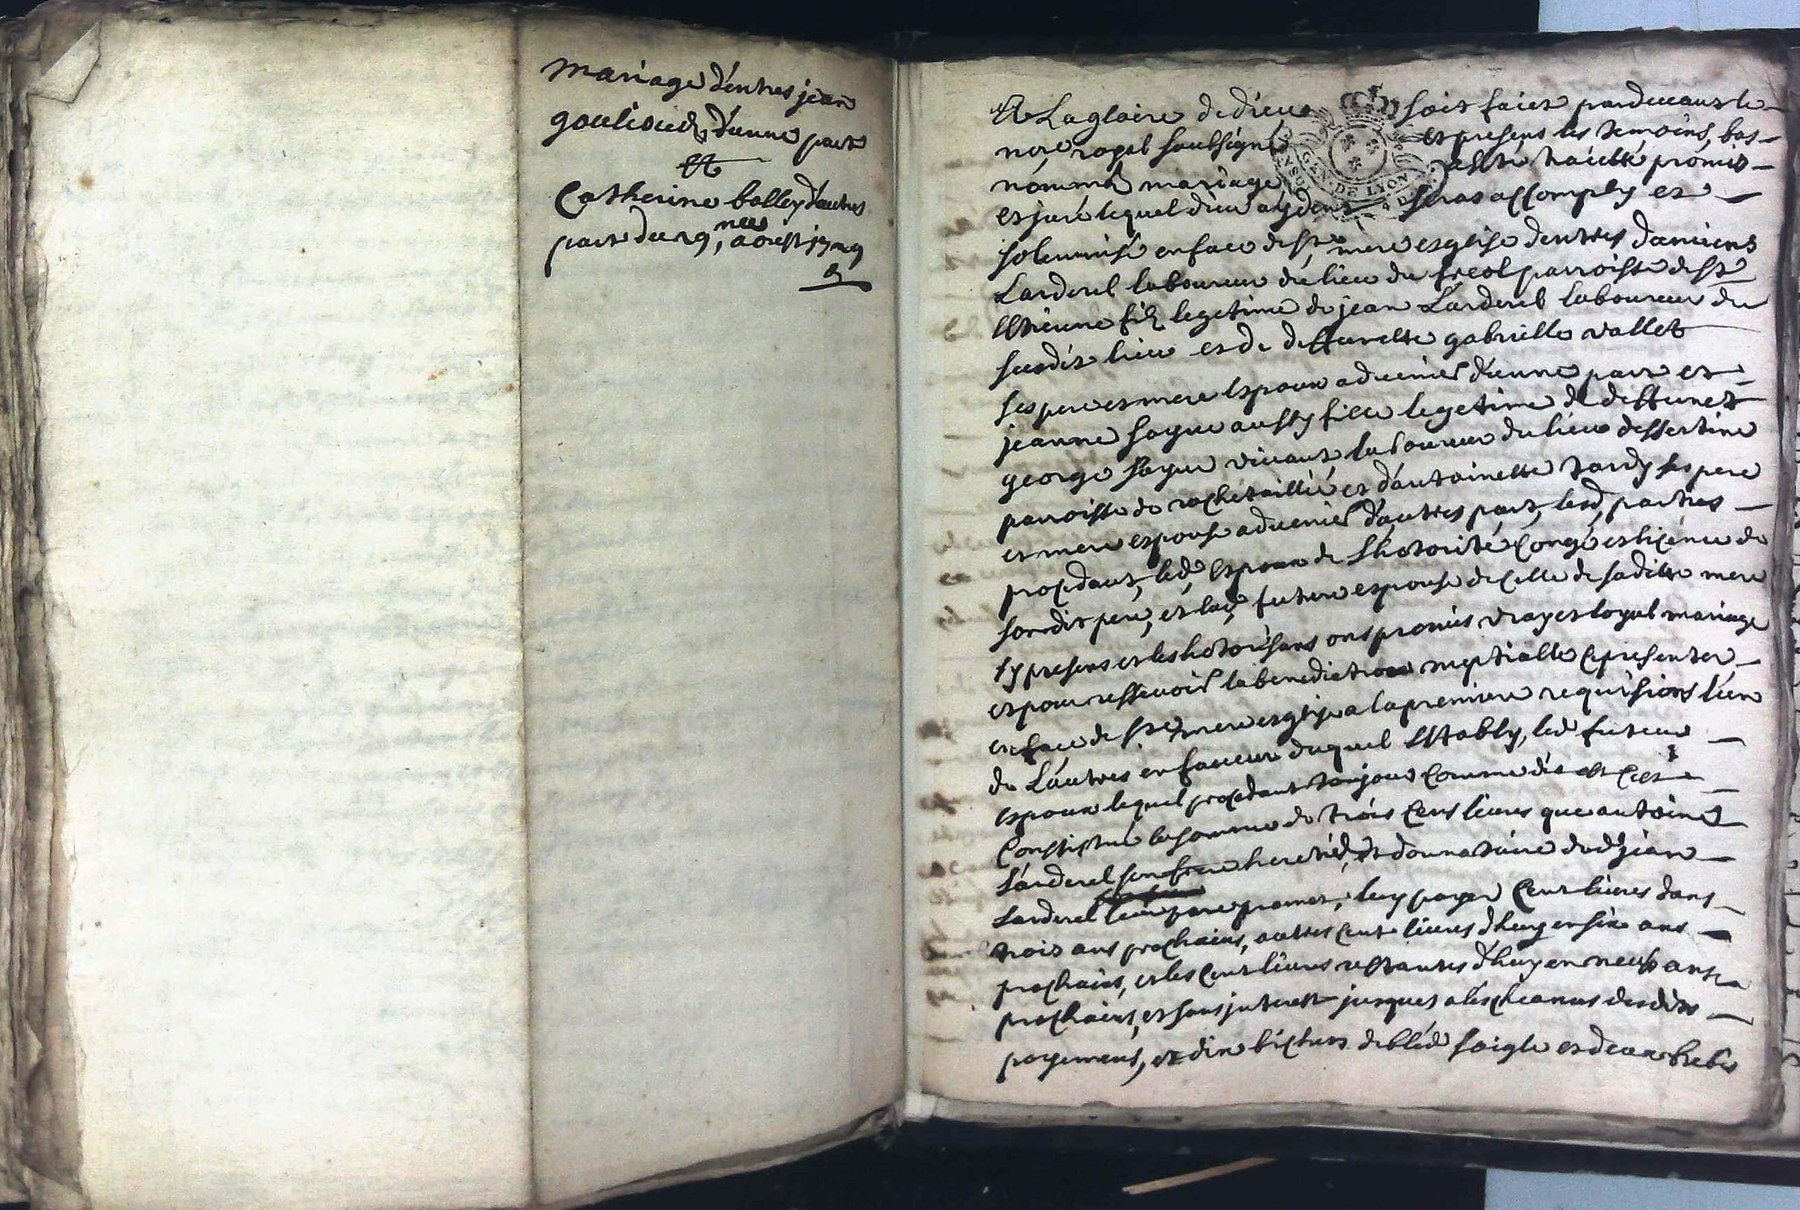 mariage d'entres jean
d'unne part
Et
Catherine balley d'autres
part du 29 août 1729
A La gloire de dieu soit faict pardevant le
nore royal soubsigné et presens les temoins bas
nommés mariage a esté traicté promis
et juré lequel dieu aydent seras accomply et
solennisé en face de ste mere esglise dentres damiens
Larderel laboureur du lieu du parroisse de st
Ettienne fils legetime de jean Larderel laboureur du
susdit lieu et de deffuncte gabrielle vallet
ses pere et mere espoux advenir d'unne part et
jeanne aussy fille legetime de deffunct
george vivant laboureur du lieu dessertine
parroisse de rochetaillié et d'antoinette tardy ses pere
et mere espouse advenir d'autres part, lesd, parties
procedant, led, espoux de lhotorité congé et licence de
son dit pere, et lad, future espouse de celle de sa ditte mere
sy presens et les hotorisans ont promis vray et loyal mariage
et pour ressevoir la benediction nuptialle ce presenter
en face de ste mere esglise a la premiere requisition l'un
de L'autres en faveur duquel Estably, led futeur
espoux lequel procedant toujours comme dit est cest
Constitué la somme de trois cens livres que antoine
Larderel son frere heretier, et donnataire dud, jean
Larderel leur pere promet, luy payer Cent livres dans
trois ans prochains, autres cent livres d'huy en six ans
prochains, et les cent livres restantes d'huy en neuf ans
prochains, et sans interest jusques a les cheances desdits
payemens, et dix bichets de bled soigle et deux brebis
GEN. DE LYON